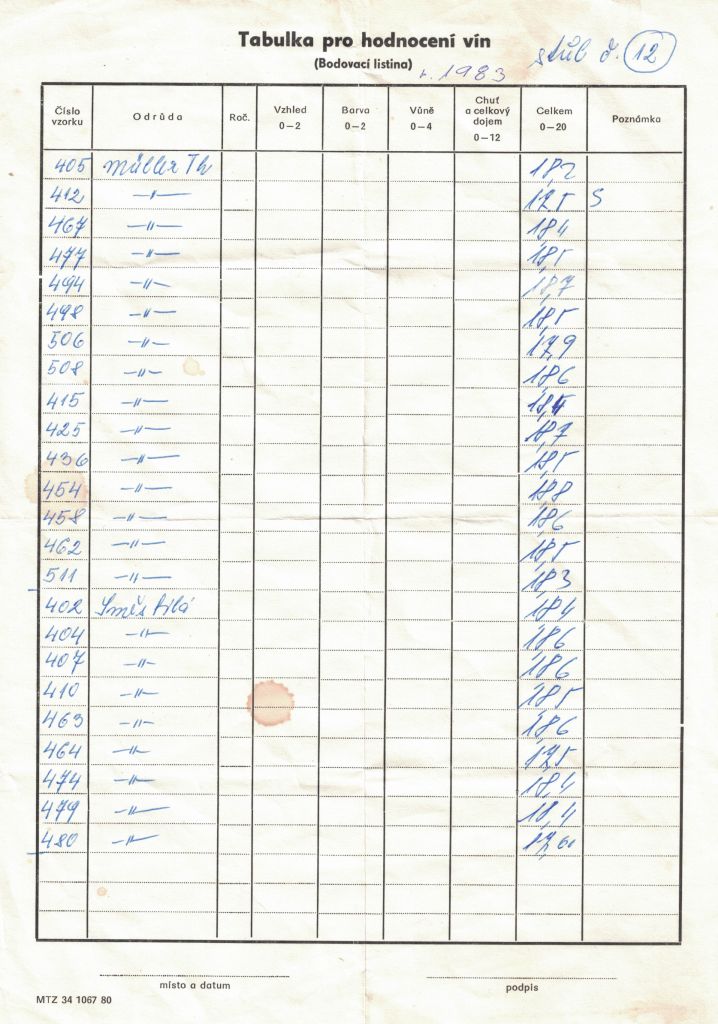 Tabulka pro hodnocení vín
(Bodovací listina)
r. 1983
stůl č. 12
Číslo vzorku Odrůda Roč. Vzhled 0—2 Barva 0—2 Vůně 0—4 Chuť a celkový dojem 0—12 Celkem 0—20 Poznámka
405 Müller Th 18,2
412 —"— 17,5 S
467 —"— 18,4
477 —"— 18,5
494 —"— 18,7
498 —"— 18,5
506 —"— 17,9
508 —"— 18,6
415 —"—
425 —"— 18,7
436 —"— 18,5
454 —"— 18,8
458 —"— 18,6
462 —"— 18,5
511 —"— 18,3
402 Směs bílá 18,4
404 —"— 18,6
407 —"— 18,6
410 —"— 18,5
463 —"— 18,6
464 —"— 17,5
474 —"— 18,4
479 —"— 18,4
480 —"—
místo a datum podpis
MTZ 34 1067 80